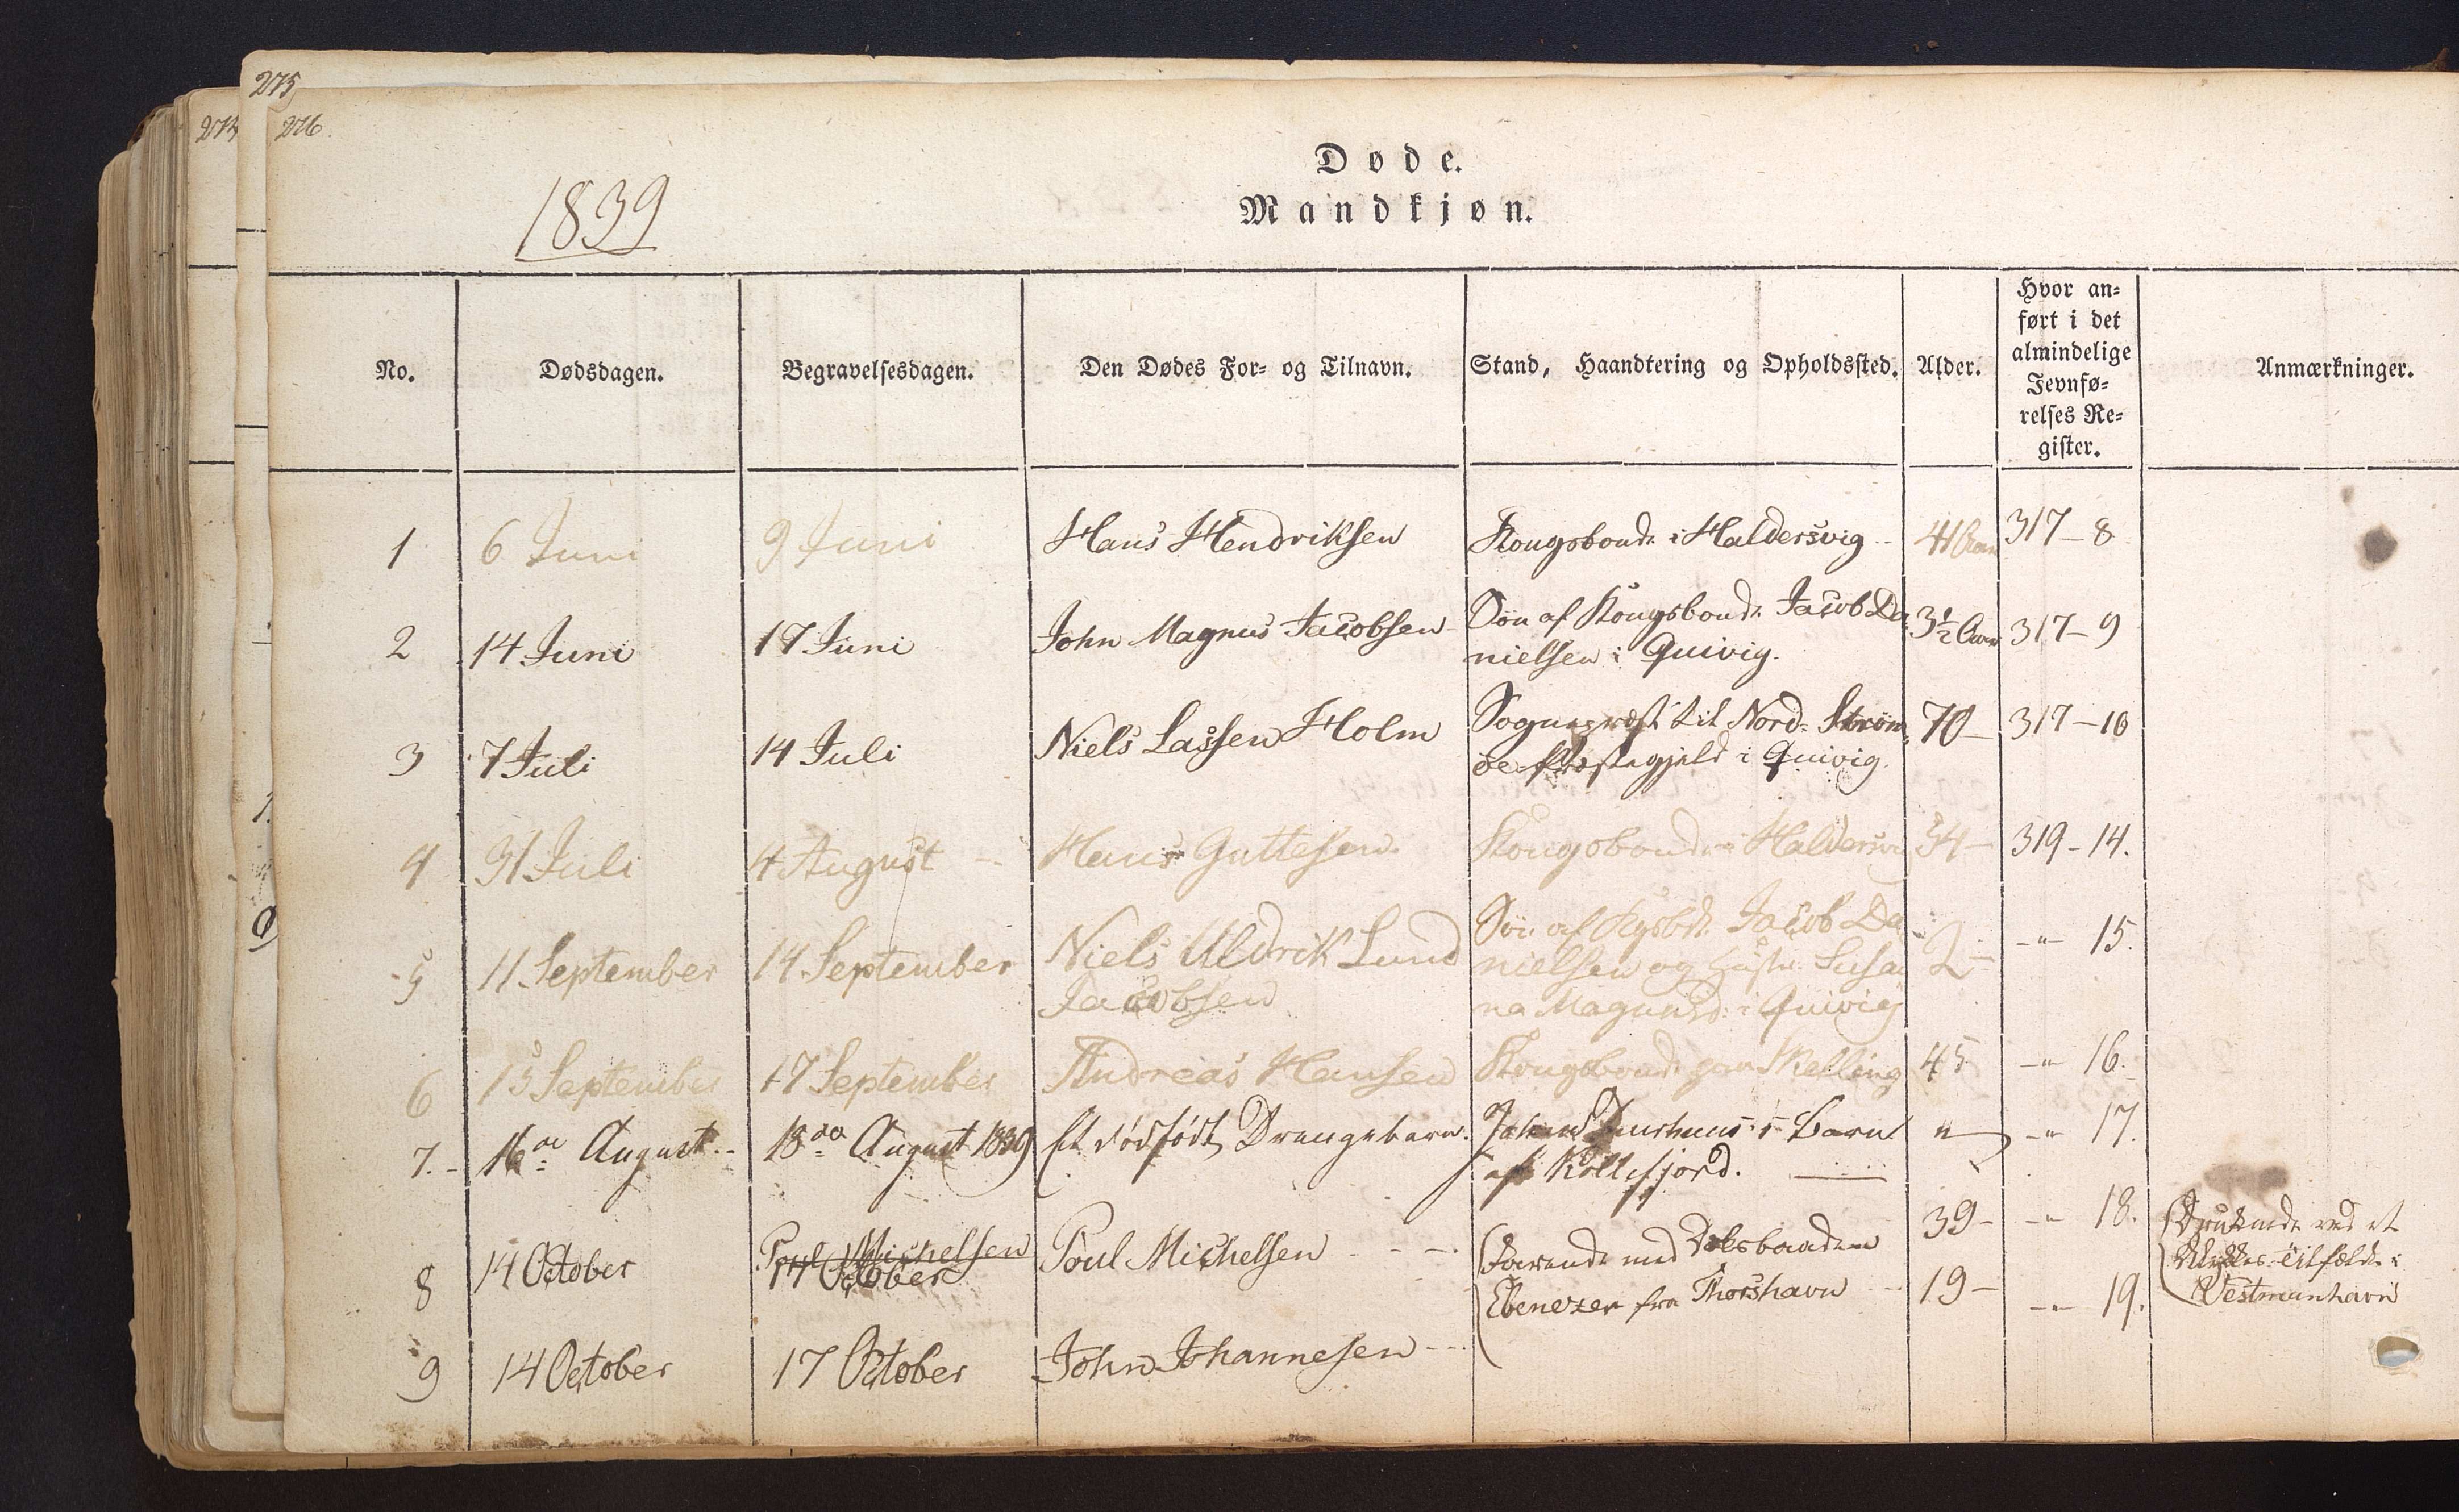 275
274
276.
Døde.
Mandkjøn.
1839
No.
Dødsdagen.
Begravelsesdagen.
Den Dødes For- og Tilnavn.
Stand, Haandtering og Opholdssted.
Alder.
Hvor an-
ført i det
almindelige
Jevnfø-
relses Re-
gister.
Anmærkninger.
1 6 Juni 9 Juni Hans Hendriksen Kongsbonde i Haldersvig 41 Aar 317-8
2 14 Juni 17 Juni John Magnus Jacobsen Søn af Kongsbonde Jacob Da 3½ Aar 317-9
nielsen i Quivig.
3 7 Juli 14 Juli Niels Lassen Holm Sognepræst til Nord-Strøm 70- 317-10
øe Præstegjeld i Quivig
4 31 Juli 4 August Hans Guttesen Kongsbonde i Haldersvi 34- 319-14.
5 11 September 14 September Niels Uldrik Lund Søn af Kgsbd. Jacob Da 2- -"- 15.
Jacobsen nielsen og Hustr. Susa
na Magnusd. i Quivig
6 15 September 17 September Andreas Hansen Kongsbonde paa Skelling 45 -"- 16.
7. 16de August 18de August 1839 Et dødfødt Drengebarn. Barn " -"- 17.
af Kollefjord.
8 14 October Poul Michelsen Poul Michelsen 39- -"- 18. Druknede ved et
17 October Farende med Dæksbaaden Ulykkes-Tilfælde i
Ebenezer fra Thorshavn 19- -"- 19. Vestmanhavn
9 14 October 17 October John Johannesen